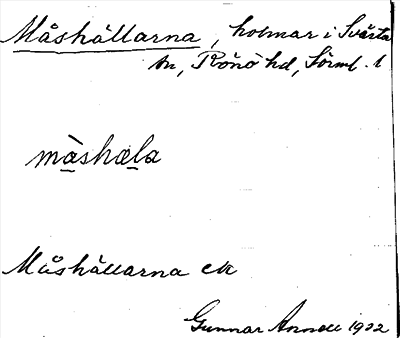 Måshällarna, holmar i Svärta
sn, Rönö hd, Sörml. l
màshæla
Måshällarna ek
Gunnar 1922